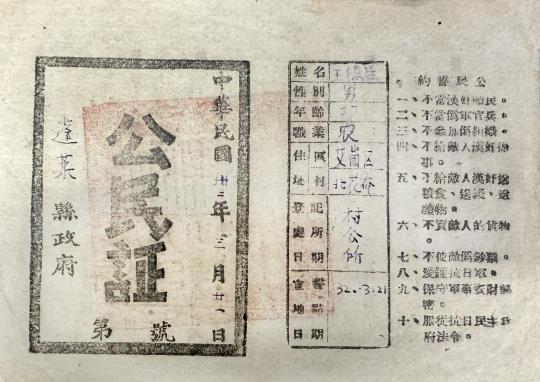 公民誓約
一、不當漢奸順民。
二、不當偽軍官兵。
三、不參加偽組織。
四、不給敵人漢奸
事。
五、不給敵人漢奸送
糧食、送
物。
六、不買敵人的貨物
。
七、不使敵偽鈔票。
八、愛護抗日軍。
九、保守軍事資財
密。
十、服從抗日民主
府法令。
姓名
性別 男
年齡 27
職業 农
住址 区 村
登記處所 村公所
日期
宣誓地點
日期 32.3.21
中華民國卅二年三月廿一日
公民証
第 號
蓬萊縣政府